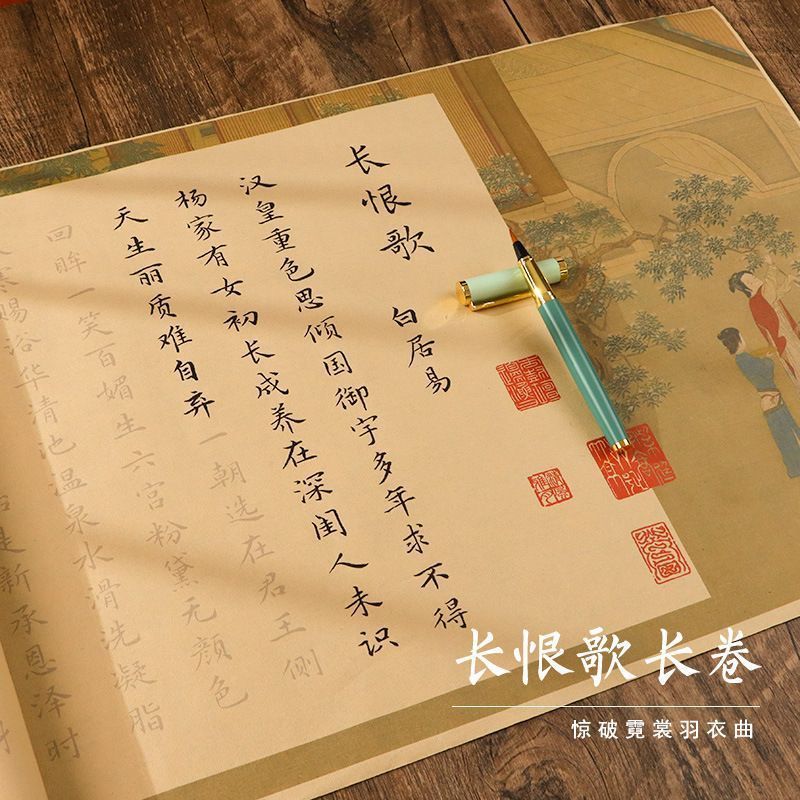 长恨歌 白居易
汉皇重色思倾国御宇多年求不得
杨家有女初长成养在深闺人未识
天生丽质难自弃一朝选在君王侧
回眸一笑百媚生六宫粉黛无颜色
寒赐浴华清池温泉水滑洗凝脂
是新承恩泽时
长恨歌长卷
惊破霓裳羽衣曲